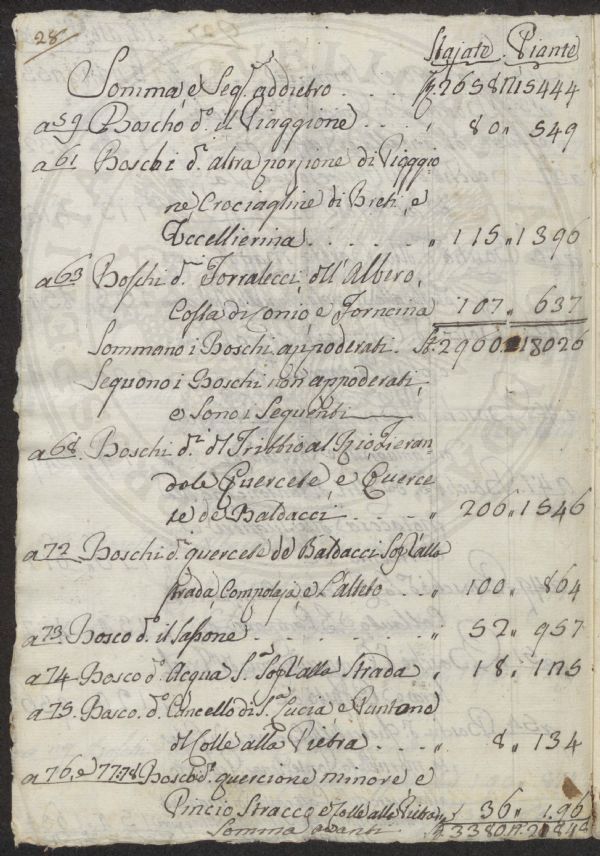 28
Stajate Piante
Somma, e Seg. addietro . . . . St. 2658 n. 15444
a 59 Boscho do. il Piaggione . . . . 80 „ 549
a 61 Boschi di. altra porzione di Piaggio
ne Crociagline di Breti, e
Uccellierina . . . . . „ 115 „ 1396
a 63 Boschi di. Torralecci, dell'Albero,
Costa di Conio, e Forncina 107 „ 637
Sommano i Boschi appoderati. St. 2960. 18026
Sequono i Boschi non appoderati,
e Sono i Sequenti
a 68. Boschi di. del Tribbio al Rio Fieran
dole Quercete, e Querce
te de Baldacci . . . . . „ 206 „ 1546
a 72 Boschi di. quercete de Baldacci Sopl'alla
strada, Compolaja, e L'alteto . . „ 100 „ 864
a 73 Bosco do. il Sassone . . . . . . . „ 52 „ 957
a 74 Bosco do. Acqua Sa. Sopl'alla Strada „ 18 „ 125
a 75. Bosco. do. Cancello di Sa. Lucia e Puntone
di Colle alla Pietra . . . „ 8 „ 134
a 76, e 77.78 Bosco di. quercione minore e
Pincio Stracco e Colle alla Pietra „ 36 „ 196
Somma avanti St. 3380. n. 21848